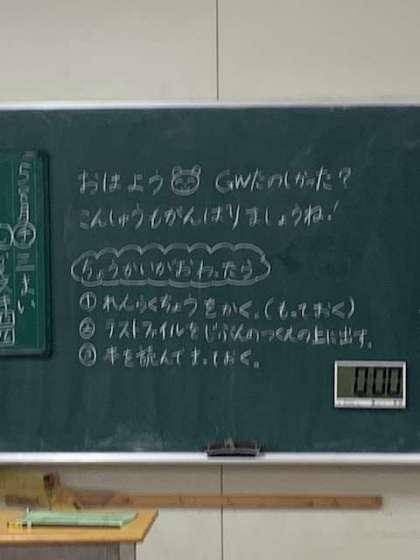 おはよう GWたのしかった?
こんしゅうもがんばりましょうね!
ちょうかいがおわったら
① れんらくちょうをかく。(もっておく)
② テストファイルをじぶんのつくえの上に出す。
③ 本を読んでまっておく。
000